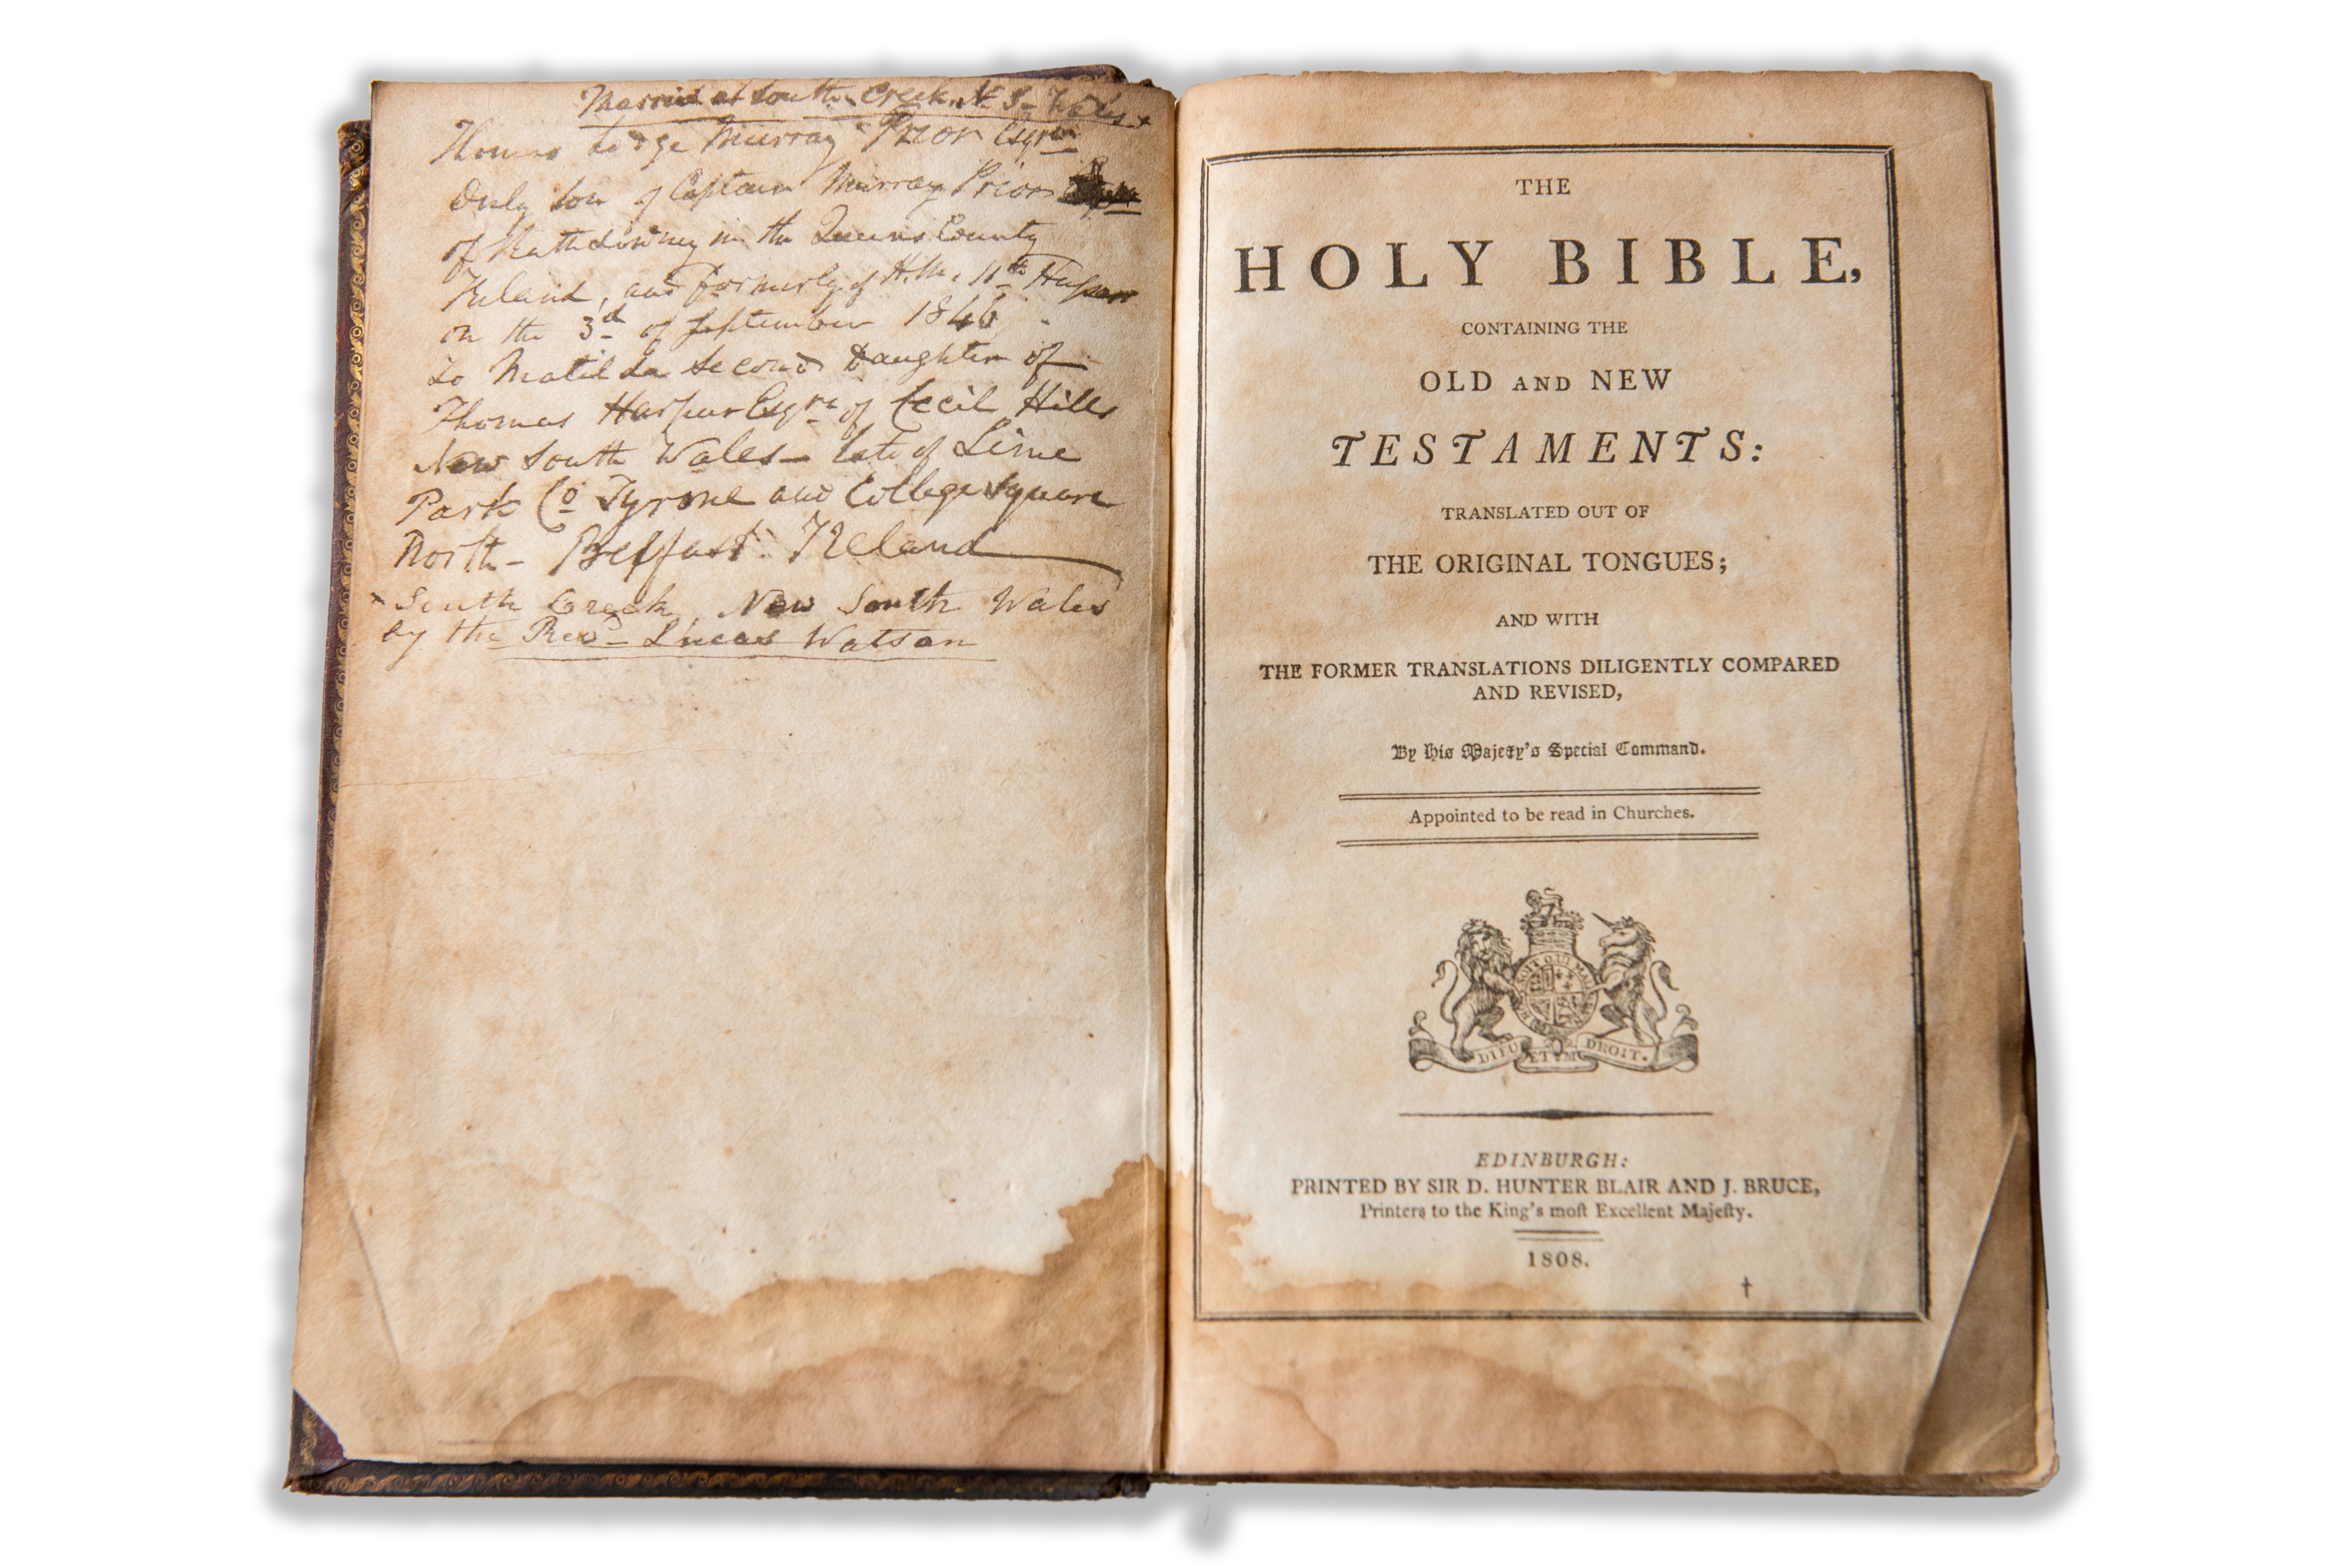 Married at South Creek N S- Wales +
Thomas Lodge Murray Prior Esqre
Only Son of Captain Murray Prior
of Rathdowney in the Queens County
Ireland, and formerly of H.M. 11th Hussars
on the 3d of September 1846
to Matilda Second Daughter of
Thomas Harpur Esqre of Cecil Hills
New South Wales - late of Lime
Park Co Tyrone and College Square
North - Belfast. Ireland
+ South Creek, New South Wales
by the Revd Lucas Watson
THE
HOLY BIBLE,
CONTAINING THE
OLD AND NEW
TESTAMENTS:
TRANSLATED OUT OF
THE ORIGINAL TONGUES;
AND WITH
THE FORMER TRANSLATIONS DILIGENTLY COMPARED
AND REVISED,
By His Majesty's Special Command.
Appointed to be read in Churches.
SOIT QUI MAL
DIEU ET M DROIT.
EDINBURGH:
PRINTED BY SIR D. HUNTER BLAIR AND J. BRUCE,
Printers to the King's moſt Excellent Majeſty.
1808.
†